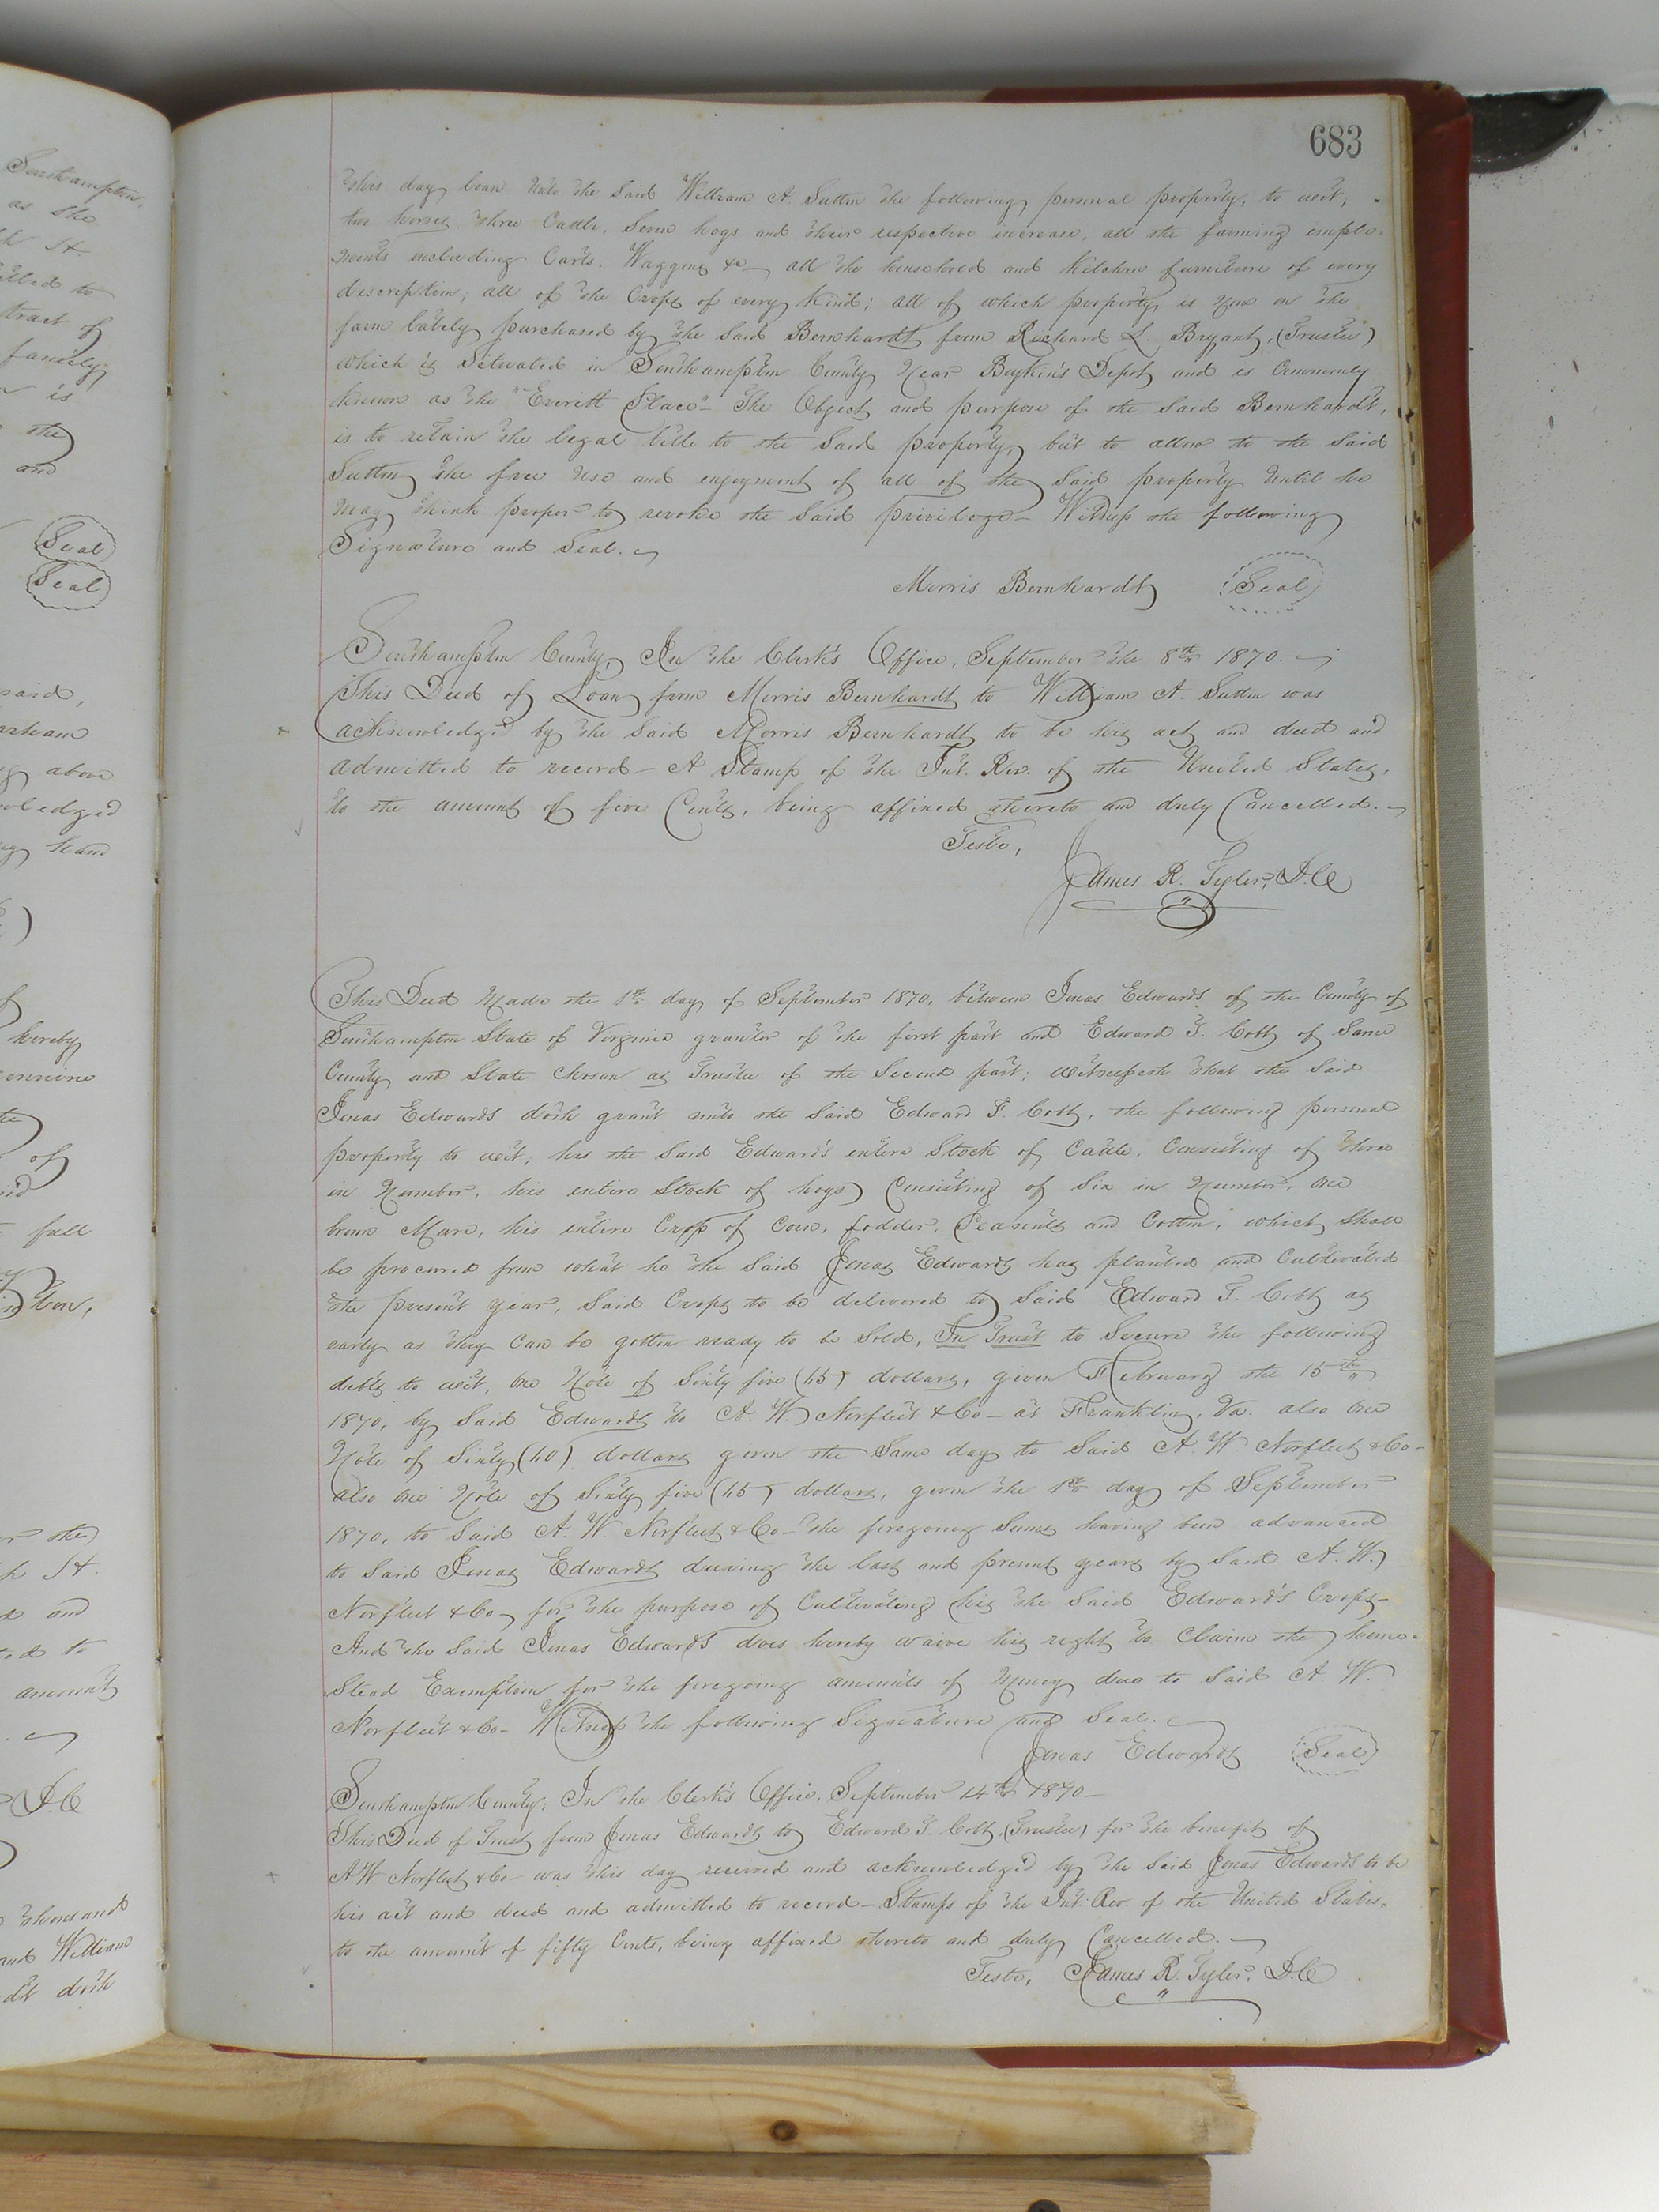 683
this day loan unto the said William A. Sutton the following personal property, to wit,
two horses three Cattle, Seven hogs and their respective increase, all the farming imple-
ments including Carts, Waggons &c— all the household and Kitchen furniture of every
description, all of the Crops of every kind; all of which property is now on the
farm lately purchased by the said Bernhardt from Richard L. Bryant, (Trustee)
which is Situated in Southampton County Near Boykin's Depot and is Commonly
known as the "Everett Place"— The Object and purpose of the said Bernhardt,
is to retain the legal title to the said property, but to allow to the said
Sutton the free use and enjoyment of all of the said property until he
may think proper to revoke the said privilege— Witness the following
Signature and Seal.
Morris Bernhardt Seal
Southampton County, In the Clerk's Office, September the 8th 1870.—
This Deed of Loan from Morris Bernhardt to William A. Sutton was
acknowledg'd by the said Morris Bernhardt to be his act and deed and
admitted to record— A Stamp of the Int. Rev. of the United States,
to the amount of five Cents, being affixed thereto and duly Cancelled.—
Teste,
James R. Tyler, D.C
This Deed Made the 1st day of September 1870, between Jonas Edwards of the County of
Southampton State of Virginia grantor of the first part and Edward T. Cobb of Same
County and State Chosen as Trustee of the Second part; witnesseth that the said
Jonas Edwards doth grant unto the said Edward T. Cobb, the following personal
property to wit; his the said Edwards entire Stock of Cattle, Consisting of three
in Number, his entire Stock of hogs Consisting of Six in Number, one
brown Mare, his entire Crop of Corn, fodder, Peanuts and Cotton, which shall
be procured from what he the said Jonas Edwards has planted and Cultivated
the present year, Said Crops to be delivered to Said Edward T. Cobb as
early as they Can be gotten ready to be Sold, In Trust to Secure the following
debts to wit; one Note of Sixty five (65) dollars, given February the 15th
1870, by Said Edwards to A. W. Norfleet & Co— at Franklin, Va. also one
Note of Sixty (60) dollars given the Same day to Said A. W. Norfleet & Co—
also one Note of Sixty five (65) dollars, given the 1st day of September
1870, to Said A. W. Norfleet & Co— the foregoing Sums having been advanced
to Said Jonas Edwards during the last and present years by Said A. W.
Norfleet & Co— for the purpose of Cultivating his the Said Edward's Crops—
And the Said Jonas Edwards does hereby waive his right to Claim the home-
Stead Exemption for the foregoing amounts of Money due to Said A. W.
Norfleet & Co— Witness the following Signature and Seal.
Jonas Edwards Seal
Southampton County; In the Clerk's Office, September 14th 1870—
This Deed of Trust from Jonas Edwards to Edward T. Cobb, (Trustee) for the benefit of
A W Norfleet & Co— was this day received and acknowledg'd by the Said Jonas Edwards to be
his act and deed and admitted to record— Stamps of the Int. Rev. of the United States,
to the amount of fifty Cents, being affixed thereto and duly Cancelled.—
Teste, James R. Tyler, D.C